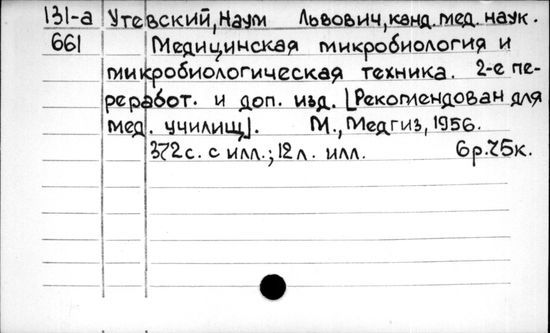 131-а Утевский, Наум Львович, канд. мед. наук.
661 Медицинская микробиология и
микробиологическая техника. 2-е пе-
реработ. и доп. изд. [Рекомендован для
мед. училищ].  М., Медгиз, 1956.
372 с. с илл.; 12 л. илл.  6р.75к.